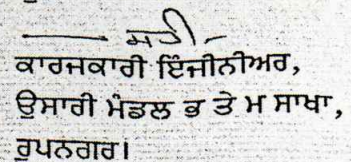 ਸਹੀ/-
ਕਾਰਜਕਾਰੀ ਇੰਜੀਨੀਅਰ,
ਉਸਾਰੀ ਮੰਡਲ ਭ ਤੇ ਮ ਸਾਖਾ,
ਰੂਪਨਗਰ।